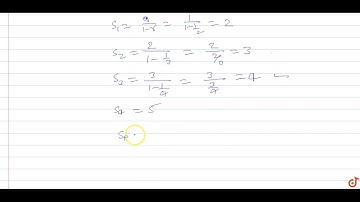 S₁ = a/(1-r) = 1/(1-1/2) = 2
S₂ = 2/(1-1/3) = 2/(2/0) = 3
S₃ = 3/(1-1/4) = 3/(3/4) = 4
S₄ = 5
Sₚ